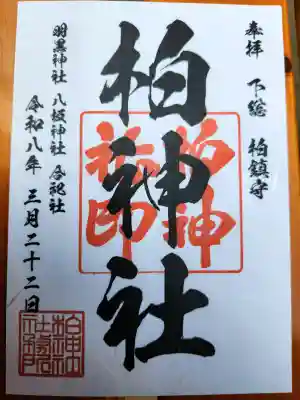 奉拝 下総 柏鎮守
柏神社
羽黒神社 八坂神社 合祀社
令和八年 三月二十二日
柏神
社印